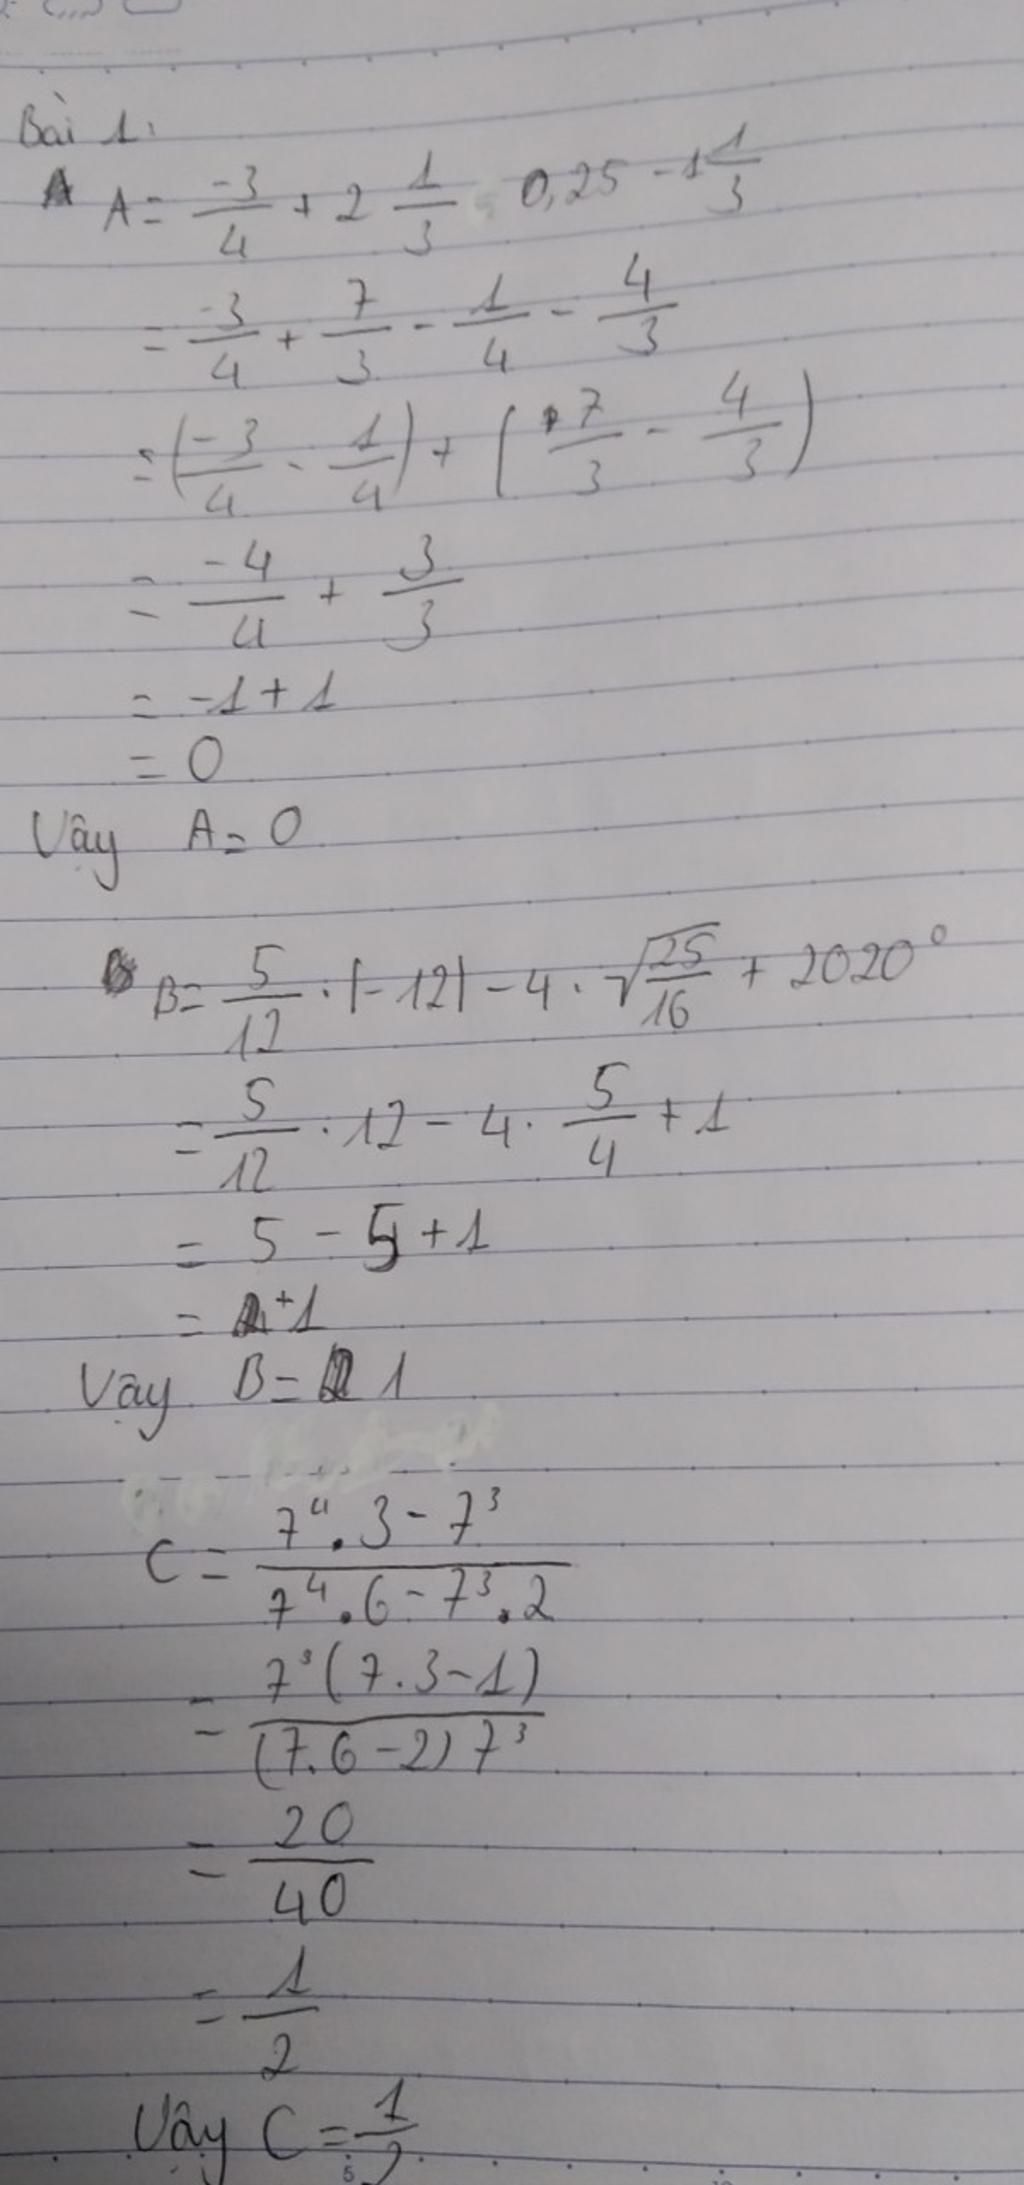 Bài 1:
A = -3/4 + 2 1/3 0,25 - 1 1/3
= -3/4 + 7/3 - 1/4 - 4/3
= (-3/4 - 1/4) + (7/3 - 4/3)
= -4/4 + 3/3
= -1 + 1
= 0
Vậy A = 0
B = 5/12 . |-12| - 4 . √25/16 + 2020⁰
= 5/12 . 12 - 4 . 5/4 + 1
= 5 - 5 + 1
= +1
Vậy B = 1
C = 7⁴ . 3 - 7³ / 7⁴ . 6 - 7³ . 2
= 7³ (7 . 3 - 1) / (7 . 6 - 2) 7³
= 20/40
= 1/2
Vậy C = 1/2
5